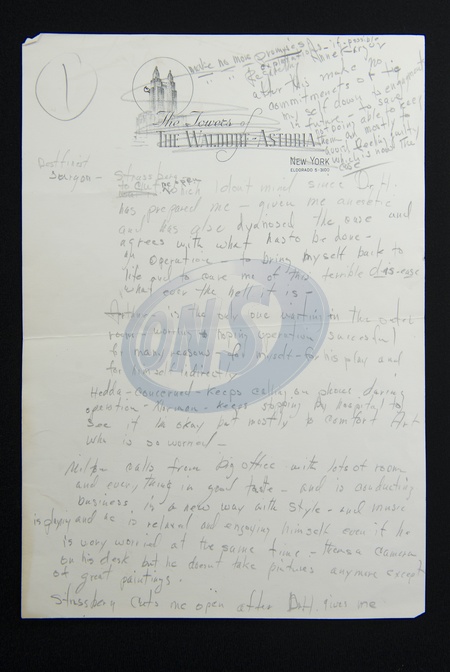 1
make no more promises
make no more
after this make no
commitments or tie
my self down to engagements
in future - to save
not being able to keep
them and mostly to
avoid feeling guilty
which is now the
case
The Towers of
THE WALDORF-ASTORIA
NEW YORK
ELDORADO 5-3000
Best finest
surgeon - Strasberg
to cut me open
which I dont mind since Dr. H.
has prepared me - given me anaesthetic
and has also diagnosed the case and
agrees with what has to be done -
an operation - to bring myself back to
life and to cure me of this terrible dis-ease
what ever the hell it is -
Arthur is the only one waiting in the outer
room - worrying & hoping operation successful
for many reasons - for myself - for his play and
for himself indirectly
Hedda - concerned - keeps calling on phone during
operation - Norman - keeps stopping by hospital to
see if I'm okay but mostly to comfort Art
who is so worried -
Milton calls from big office with lots of room
and everything in good taste - and is conducting
business in a new way with style - and music
is playing and he is relaxed and enjoying himself even if he
is very worried at the same time - theres a camera
on his desk but he doesnt take pictures anymore except
of great paintings.
Strasberg cuts me open after Dr. H. gives me
OMS